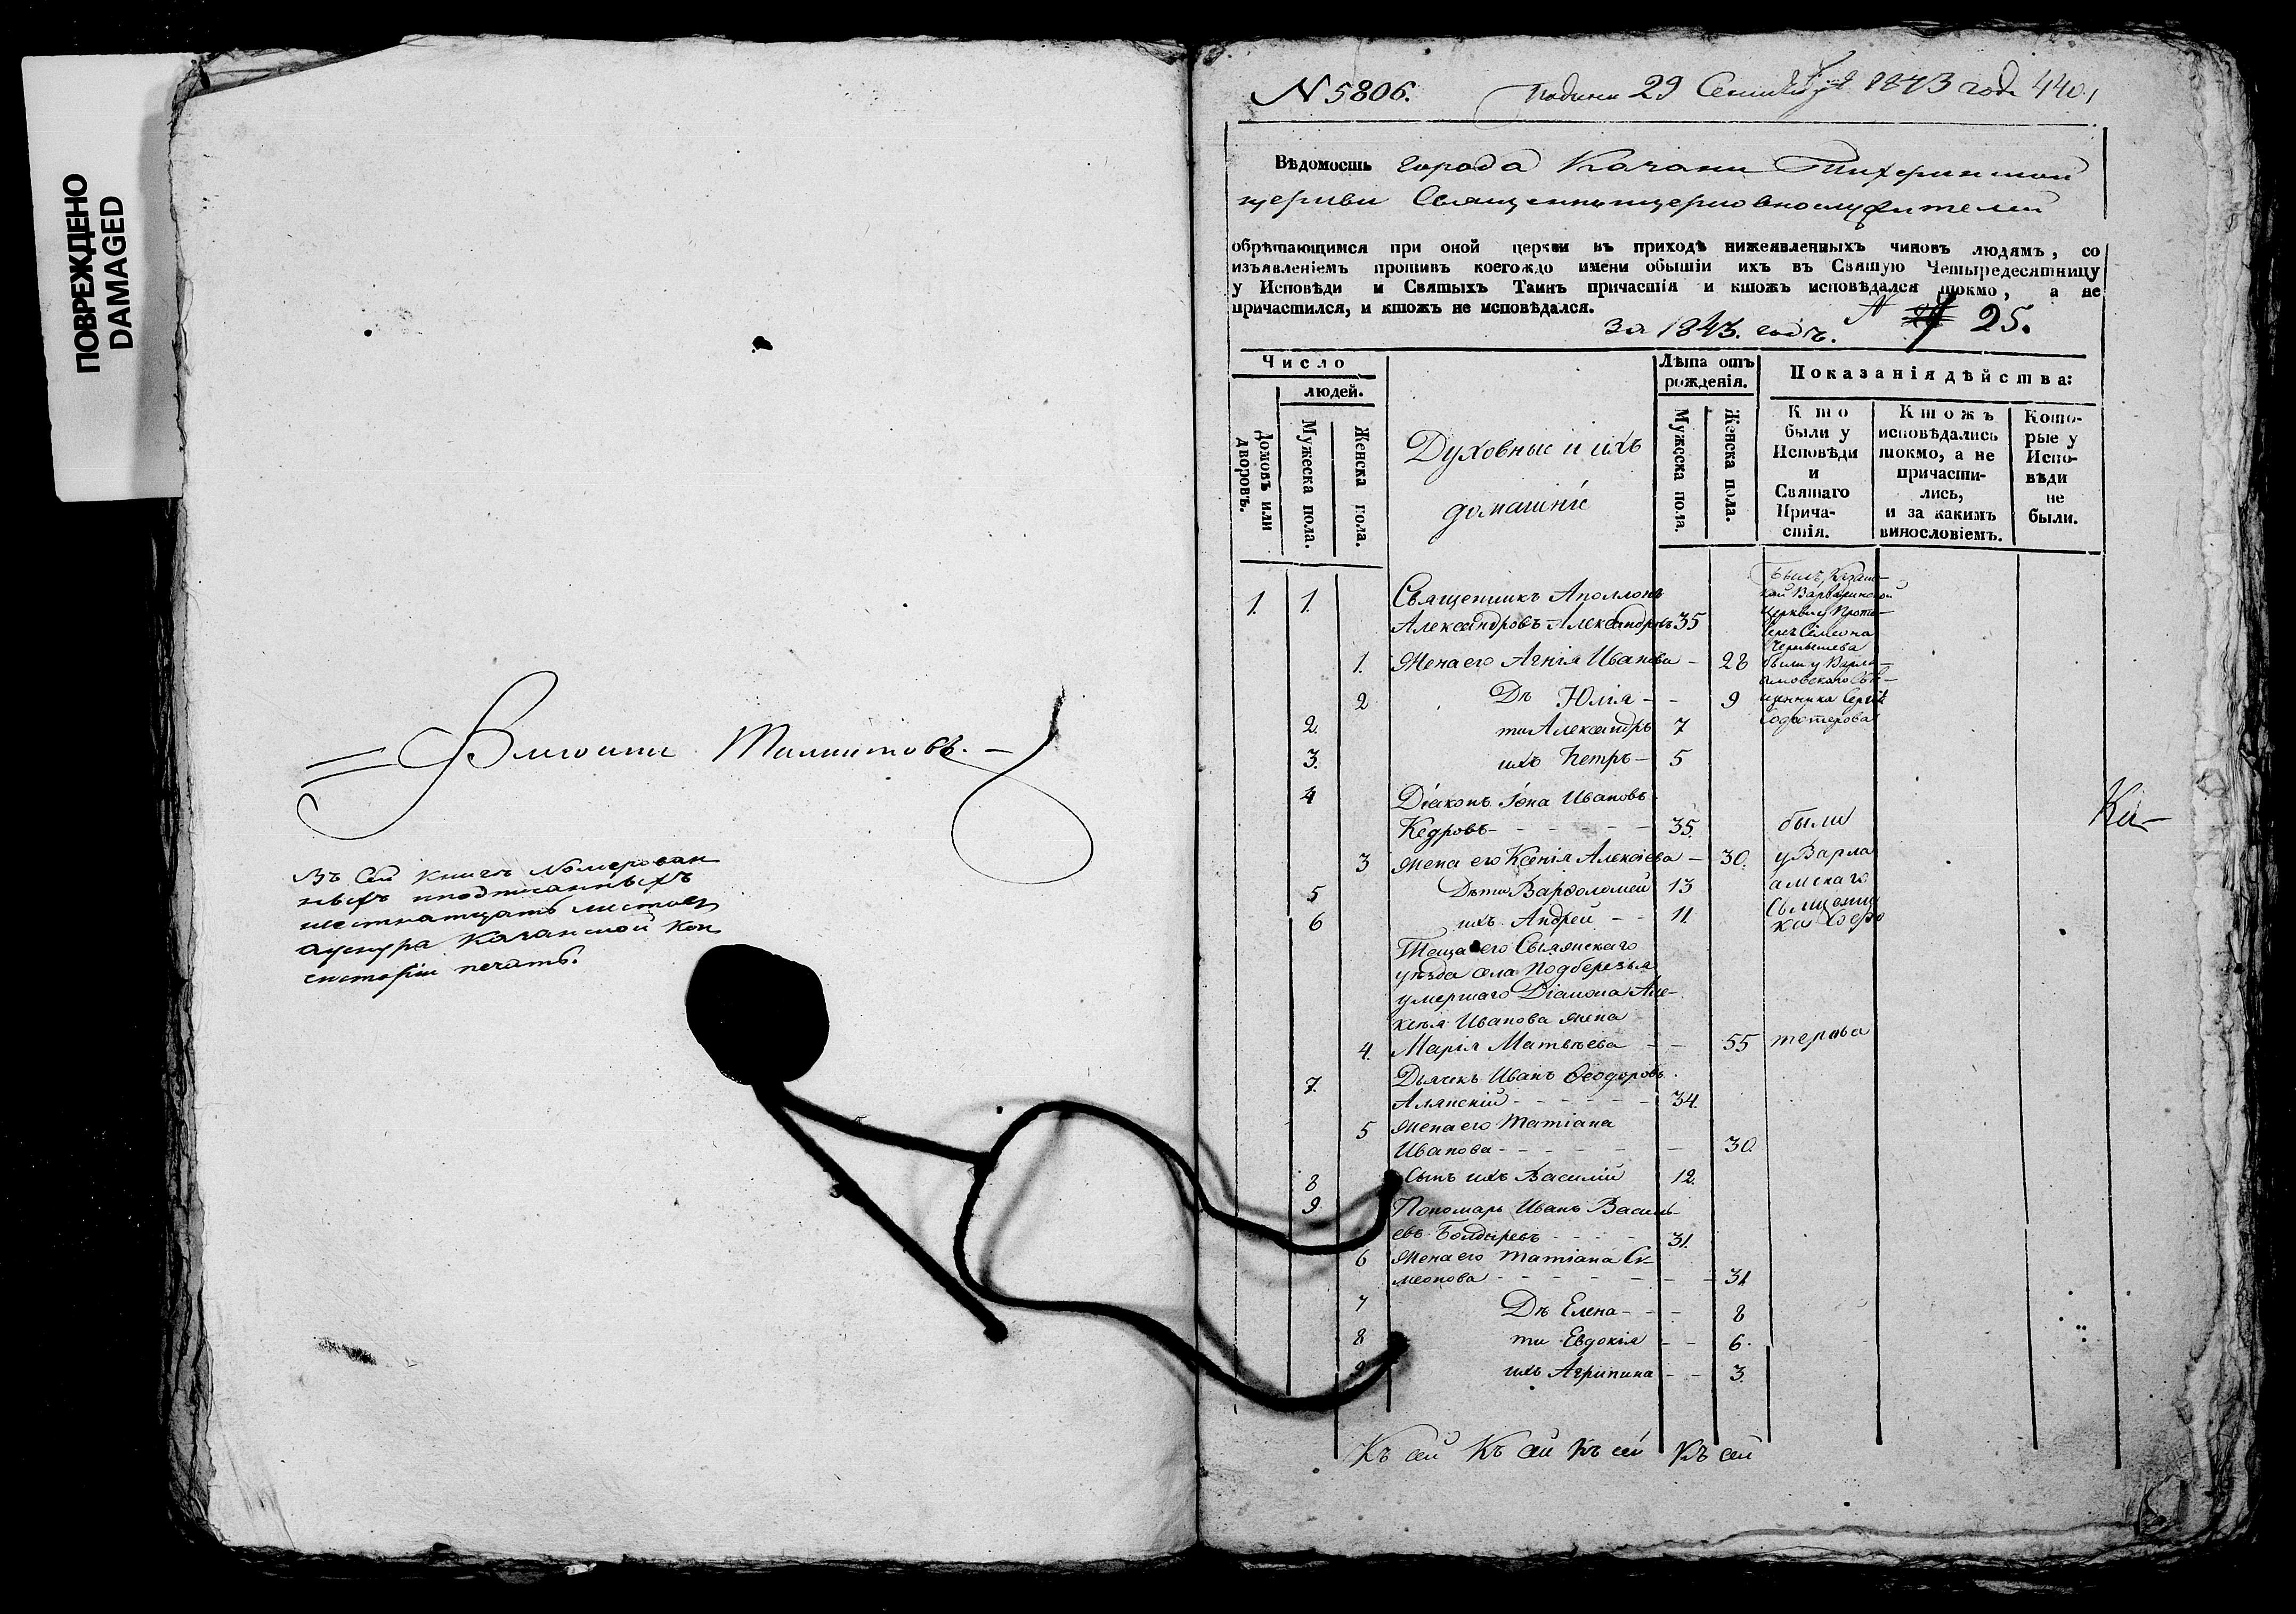 ПОВРЕЖДЕНО
DAMAGED
Въ сей книге номерован
ныхъ и подписанныхъ
шестнатцать листовъ
у шнура Казанской Кон
систоріи печать.
N 5806. Подана 29 Сентября 1843 года 440.
Вѣдомость города Казани Тихвинской
церкви Священноцерковнослужителей
обрѣтающимся при оной церкви въ приходѣ нижеявленныхъ чиновъ людямъ, со
изъявленіемъ противъ коегождо имени обытіи ихъ въ Святую Четыредесятницу
у Исповѣди и Святыхъ Таинъ причастія и ктожъ исповѣдался токмо, а не
причастился, и ктожъ не исповѣдался.
за 1843. годъ. N 25.
Число
людей.
Домовъ или дворовъ.
Мужеска пола.
Женска пола.
Духовные и ихъ
домашніе
Лѣта отъ
рожденія.
Мужеска пола.
Женска пола.
Показанія дѣйства:
Кто
были у
Исповѣди
и
Святаго
Прича-
стія.
Ктожъ
исповѣдались
токмо, а не
причасти-
лись,
и за какимъ
винословіемъ.
Кото-
рые у
Испо-
вѣди
не
были.
1. 1. Священникъ Аполлонъ
Александровъ Александровъ 35
Былъ Казан-
ской Варваринской
церкви у Прото-
іерея Симеона
Чернышева
1. Жена его Агнія Иванова - 28
были у Варла-
амовского Свя-
щенника Сергія
2 Дѣ Юлія - - 9
2. ти Александръ 7
3. ихъ Петръ - 5
4 Діаконъ Іона Ивановъ
Кедровъ - - - - - 35. были
3 Жена его Ксенія Алексіева - 30. у Варла
5 Дѣти Варфоломей 13 амскаго
6 ихъ Андрей - - 11. Священни
ка
Теща его Свіяжскаго
уѣзда села Подберезья
умершаго Діакона Але-
ксѣя Иванова жена
4. Марія Матвѣева - - 55
7. Дьячекъ Иванъ Ѳеодоровъ
Аланскій - - - - - 34.
5 Жена его Татіана
Иванова - - - - - - 30.
8 Сынъ ихъ Василій 12.
9 Пономарь Иванъ Василь-
евъ Болдыревъ - - - - 31.
6 Жена его Татіана Си-
меонова - - - - - - 31
7 Дѣ Елена - - - 8
8 ти Евдокія - - 6.
9 ихъ Агрипина - - 3.
Ка-
Къ сей Къ сей Къ сей Къ сей